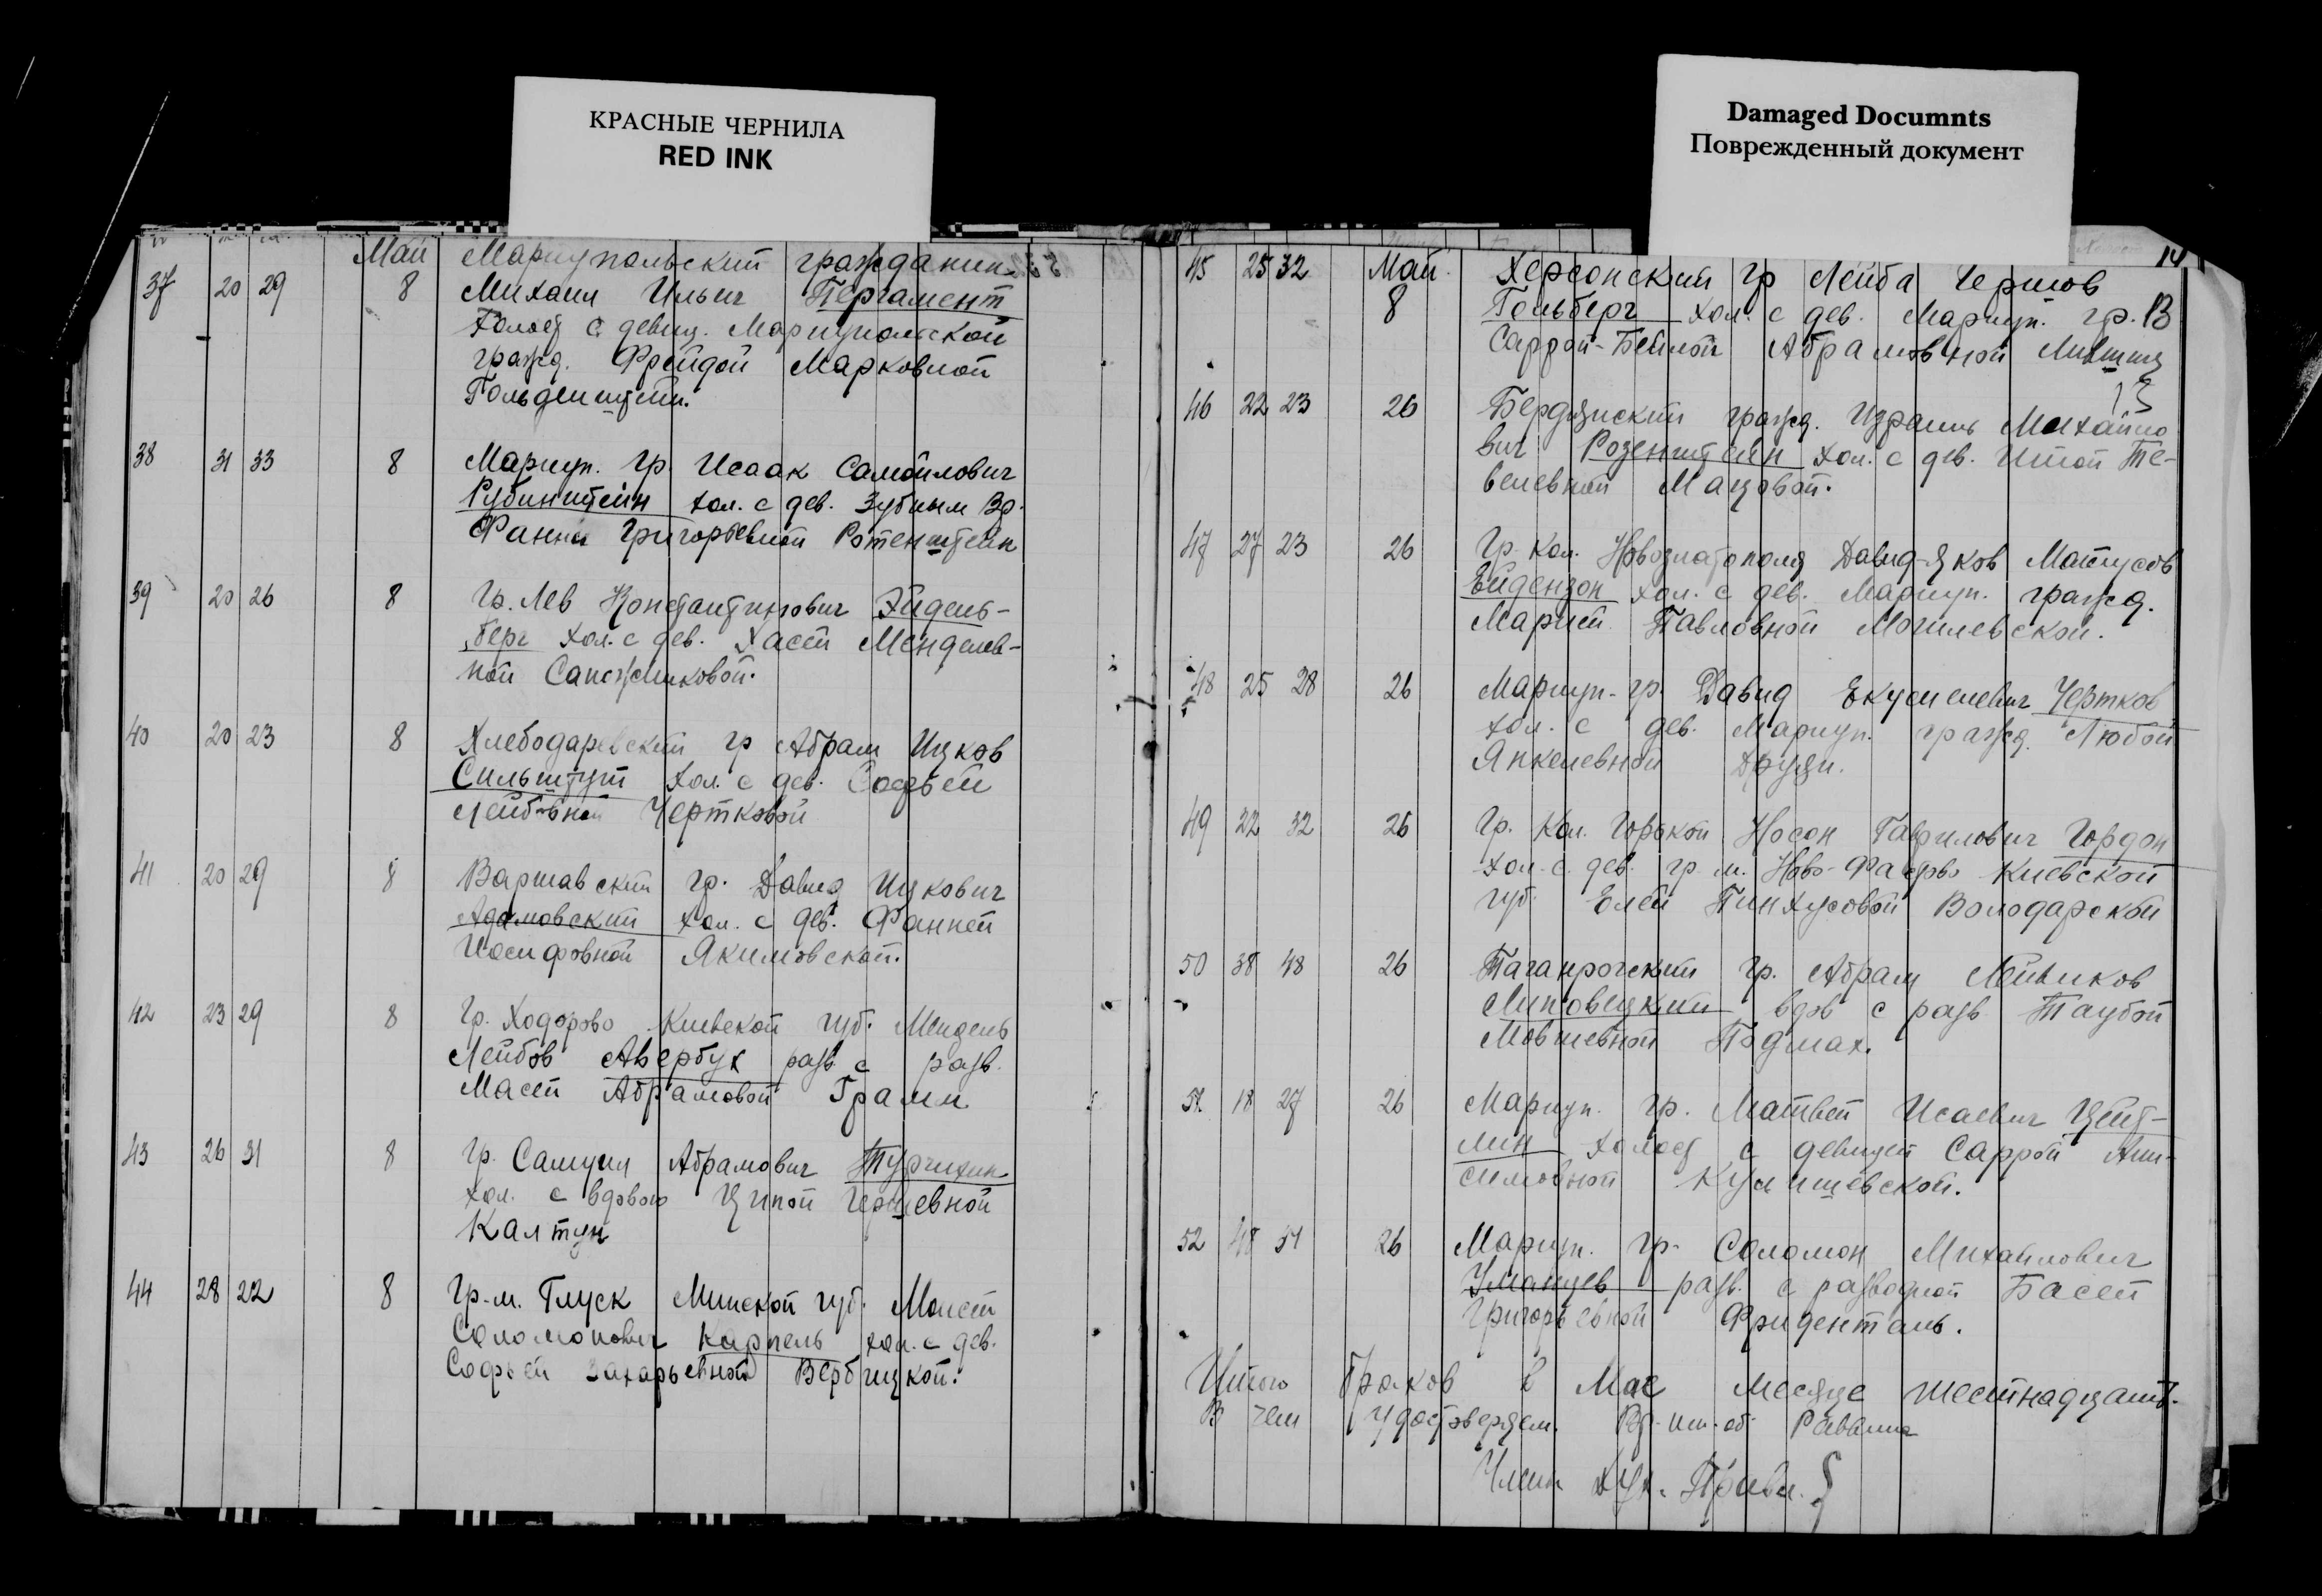 КРАСНЫЕ ЧЕРНИЛА
RED INK
Damaged Documnts
Поврежденный документ
14
Май Мариупольский гражданин
37 20 29 8 Михаил Ильич Пергамент
холост с девиц. Мариупольской
гражд. Фрейдой Марковной
Гольденштейн.
38 31 33 8 Мариуп. гр. Исаак Самойлович
Рубинштейн хол. с дев. Зубным Вр.
Фанни Григорьевной Ротенштейн
39 20 26 8 Гр. Лев Константинович Эйдель-
берг хол. с дев. Хасей Менделев-
ной Сапожниковой.
40 20 23 8 Хлебодаровский гр Абрам Ицков
Сильштут хол. с дев. Софьей
Лейбовной Чертковой
41 20 29 8 Варшавский гр. Давид Ицкович
Адамовский хол. с дев. Фанней
Иосифовной Якимовской.
42 23 29 8 Гр. Ходорово Киевской губ. Мендель
Лейбов Авербух разв. с разв.
Масей Абрамовой Грамм
43 26 31 8 Гр. Самуил Абрамович Турчихин
хол. с вдовою Ципой Гершевной
Калтун
44 28 22 8 Гр. м. Глуск Минской губ. Моисей
Соломонович Карпель хол. с дев.
Софьей Захарьевной Вербицкой.
45 25 32 Май Херсонский гр Лейба Гершов
8 Гольберг хол. с дев. Мариуп. гр. В
Саррой-Бейлой Абрамовной Лившиц
46 22 23 26 Бердянский гражд. Израиль Михайло
вич Розенштейн хол. с дев. Итой Те-
велевной Мацовой.
47 27 23 26 Гр. Кол. Новозлатополя Давид-Яков Матусов
Ейдензон хол. с дев. Мариуп. гражд.
Марией Павловной Могилевской.
48 25 28 26 Мариуп. гр. Давид Екусиелевич Чертков
хол. с дев. Мариуп. гражд. Любой
Янкелевной Друян.
49 22 32 26 Гр. Кол. Горькой Носон Гаврилович Гордон
хол. с дев. гр. м. Ново-Фастово Киевской
губ. Елей Пинхусовой Володарской
50 38 48 26 Таганрогский гр. Абрам Лейвиков
Липовецкий вдов с разв. Таубой
Мовшевной Подмах.
51 18 27 26 Мариуп. гр. Матвей Исаевич Цейт-
лин холост с девицей Саррой Ани-
симовной Кулишевской.
52 48 51 26 Мариуп. гр. Соломон Михайлович
Уманцев разв. с разводной Басей
Григорьевной Фриденталь.
Итого браков в Мае месяце шестнадцать.
В чем удостоверяем. Вр. исп. об. Раввина
Член Дух. Правл.